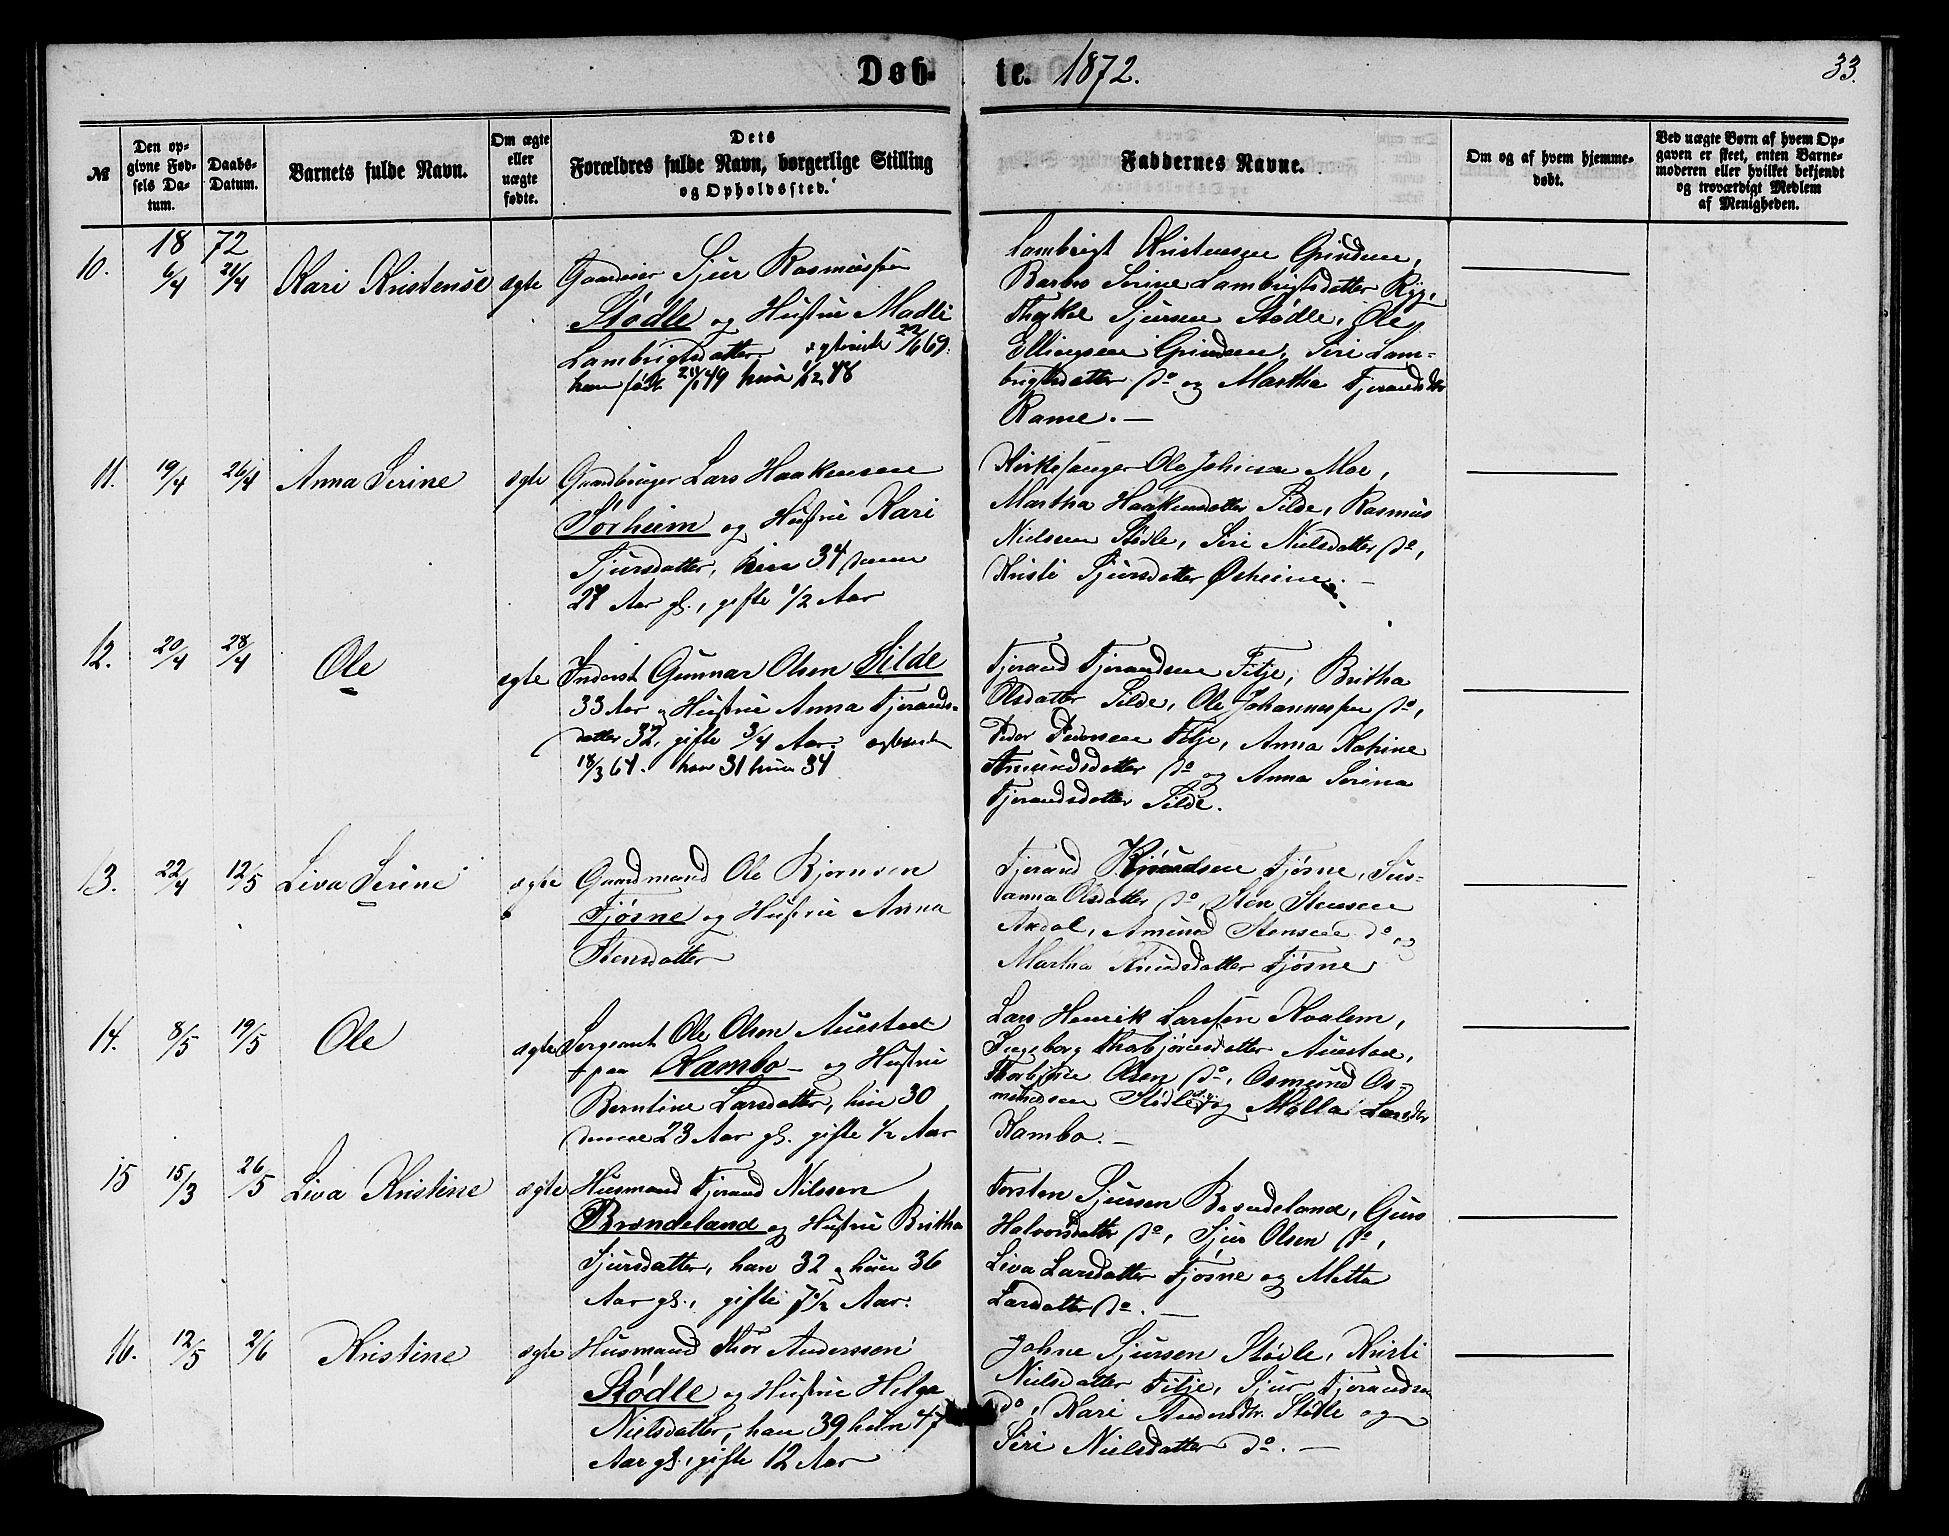 Døb-
te. 1872.
33.
№
Den op-
givne Fød-
sels Da-
tum.
Daabs-
Datum.
Barnets fulde Navn.
Om ægte
eller
uægte
fødte.
Dets
Forældres fulde Navn, borgerlige Stilling
og Opholdssted.
Faddernes Navne.
Om og af hvem hjemme-
døbt.
Ved uægte Børn af hvem Op-
gaven er skeet, enten Barne-
moderen eller hvilket bekjendt
og troværdigt Medlem
af Menigheden.
18 72
10. 6/4 21/4 Kari Kristense ægte
Gaardeier Sjur Rasmussen
Stødle og Hustrue Madli
Lambrigtsdatter. ægteviede 22/6 69.
han født 21/1 49 hun 1/12 48
Lambrigt Kristensen Grindem,
Barbro Serine Lambrigtsdatter Ryg,
Thykel Sjursen Stødle, Ole
Ellingsen Grindem, Siri Lam-
brigtsdatter do og Martha Tjerandsdtr
Rame. —
11. 19/4 26/4 Anna Serine ægte
Gaardbruger Lars Haakensen
Sørheim og Hustrue Kari
Sjursdatter, hin 34 denne
27 Aar gl., gifte 1/2 Aar
Kirkesanger Ole Johnsen Moe,
Martha Haakensdatter Silde, Rasmus
Nielsen Stødle, Siri Nielsdatter do,
Kristi Sjursdatter Østheim. —
12. 20/4 28/4 Ole ægte
Inderst Gunnar Olsen Silde
33 Aar og Hustrue Anna Tjerands-
datter 32, gifte 3/4 Aar. ægteviet
18/3 64. han 31 hun 34
Tjerand Tjerandsen Fitje, Britha
Olsdatter Silde, Ole Johannessen do,
Peder Pedersen Fitje, Anna Katrine
Amundsdatter do og Anna Serina
Tjerandsdatter Silde.
13. 22/4 12/5 Liva Serine ægte
Gaardmand Ole Bjørnsen
Fjøsne og Hustrue Anna
Stensdatter
Tjerand Fjøsne, Sus-
anna Olsdatter do, Sten Stensen
Axdal, Amund Stensen do, og
Martha Knudsdatter Fjøsne
14. 8/5 19/5 Ole ægte
Sergeant Ole Olsen Austad
paa Kambo — og Hustrue
Berntine Larsdatter, hin 30
denne 23 Aar gl. gifte 1/2 Aar
Lars Henrik Larssen Kvalem,
Ingeborg Thorbjørnsdatter Austad,
Thorbjørn Olsen do, Osmund Os-
mundsen Stødle og Malla Larsdtr
Kambo. —
15 15/3 26/5 Liva Kristine ægte
Husmand Tjerand Nilssen
Brondeland og Hustrue Britha
Sjursdatter, han 32 og hun 36
Aar gl., gifte 7 1/2 Aar.
Torsten Sjursen Brondeland, Guro
Halvorsdatter do, Sjur Olsen do,
Liva Larsdatter Fjøsne og Metta
Larsdatter do. —
16. 12/5 2/6 Kristine ægte
Husmand Thor Anderssen
Stødle og Hustrue Helga
Nielsdatter, han 39 hun 47
Aar gl., gifte 12 Aar
Johne Sjursen Stødle, Kristi
Nielsdatter Fitje, Sjur Tjerandsen
do, Kari Andersdtr Stødle og
Siri Nielsdatter do. —